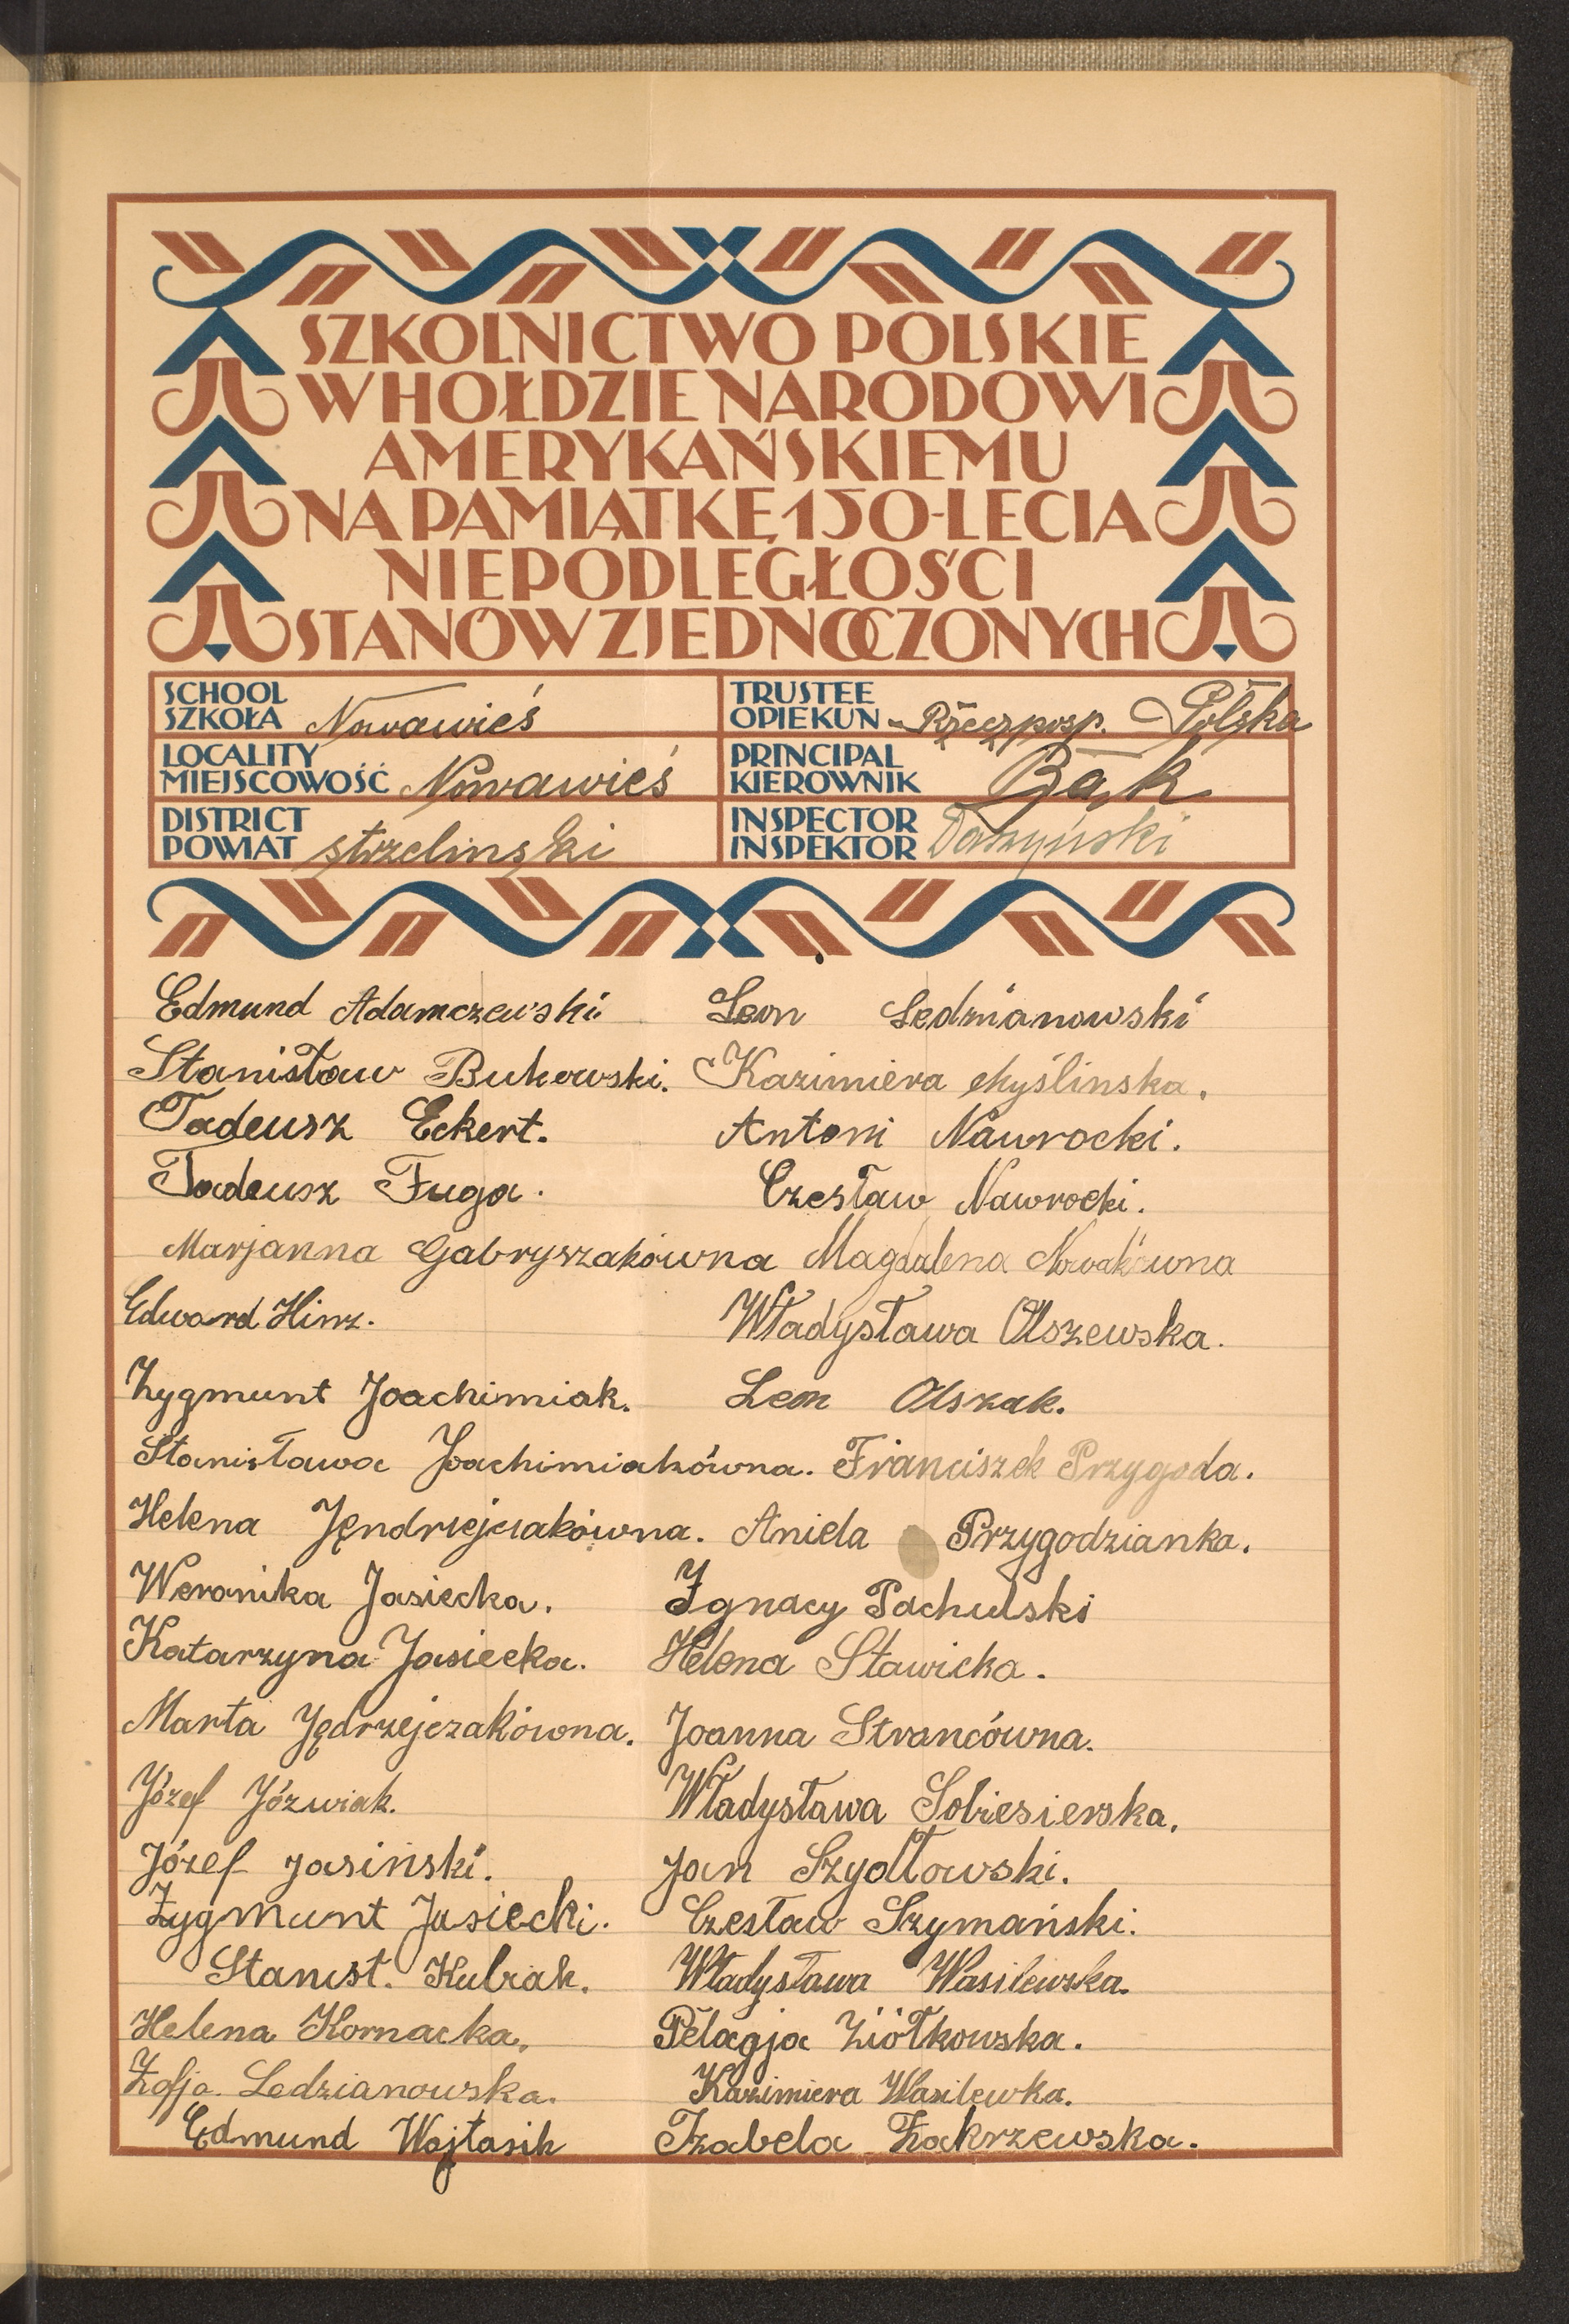 SZKOLNICTWO POLSKIE
W HOŁDZIE NARODOWI
AMERYKAŃSKIEMU
NA PAMIĄTKĘ 150-LECIA
NIEPODLEGŁOŚCI
STANÓW ZJEDNOCZONYCH
SCHOOL
SZKOŁA Nowawieś
TRUSTEE
OPIEKUN Rzeczposp. Polska
LOCALITY
MIEJSCOWOŚĆ Nowawieś
PRINCIPAL
KIEROWNIK Bąk
DISTRICT
POWIAT strzelinski
INSPECTOR
INSPEKTOR Daszyński
Edmund Adamczewski Leon Ledzianowski
Stanisław Bukowski. Kazimiera Myślinska.
Tadeusz Eckert. Antoni Nawrocki.
Tadeusz Fuga. Czesław Nawrocki.
Marjanna Gabryszakówna Magdalena Nowakówna
Edward Hinz. Władysława Olszewska.
Zygmunt Joachimiak. Leon Olszak.
Stanisława Joachimiakówna. Franciszek Przygoda.
Helena Jędrzejczakówna. Aniela Przygodzianka.
Weronika Jasiecka. Ignacy Pachulski
Katarzyna Jasiecka. Helena Sławicka.
Marta Jędrzejczakówna. Joanna Strancówna.
Józef Józwiak. Władysława Sobiesierska.
Józef Jasiński. Jan Szydłowski.
Zygmunt Jasiecki. Czesław Szymański.
Stanist. Kubiak. Władysława Wasilewska.
Helena Kornacka. Pelagja Ziółkowska.
Zofja Ledzianowska. Kazimiera Wasilewka.
Edmund Wojtasik Izabela Zakrzewska.